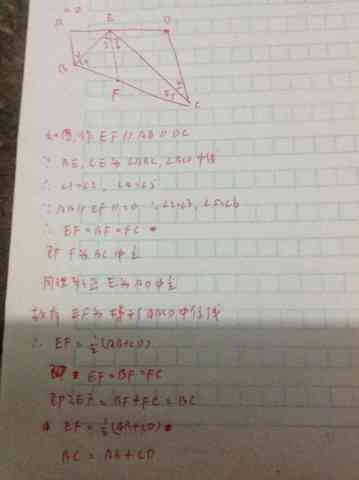 A E D
B
F
C
如图,作EF∥AB∥DC
∵BE,CE为∠ABC,∠BCD中线
∴∠1=∠2,∠4=∠5
∵AB∥EF∥CD ∴∠2=∠3,∠5=∠6
∴EF=BF=FC
即F为BC中点
同理 E为AD中点
故有EF为梯形ABCD中位线
∴EF=½(AB+CD)
即 EF=BF=FC
即2EF=BF+FC=BC
EF=½(AB+CD)
BC=AB+CD